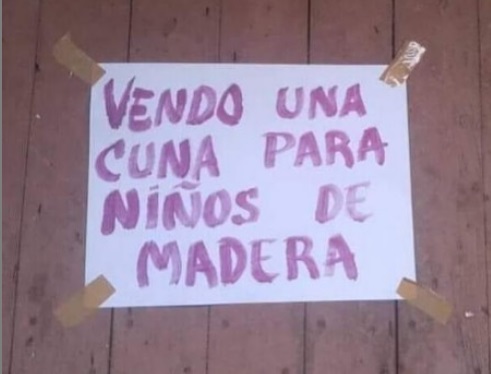 VENDO UNA
CUNA PARA
NIÑOS DE
MADERA